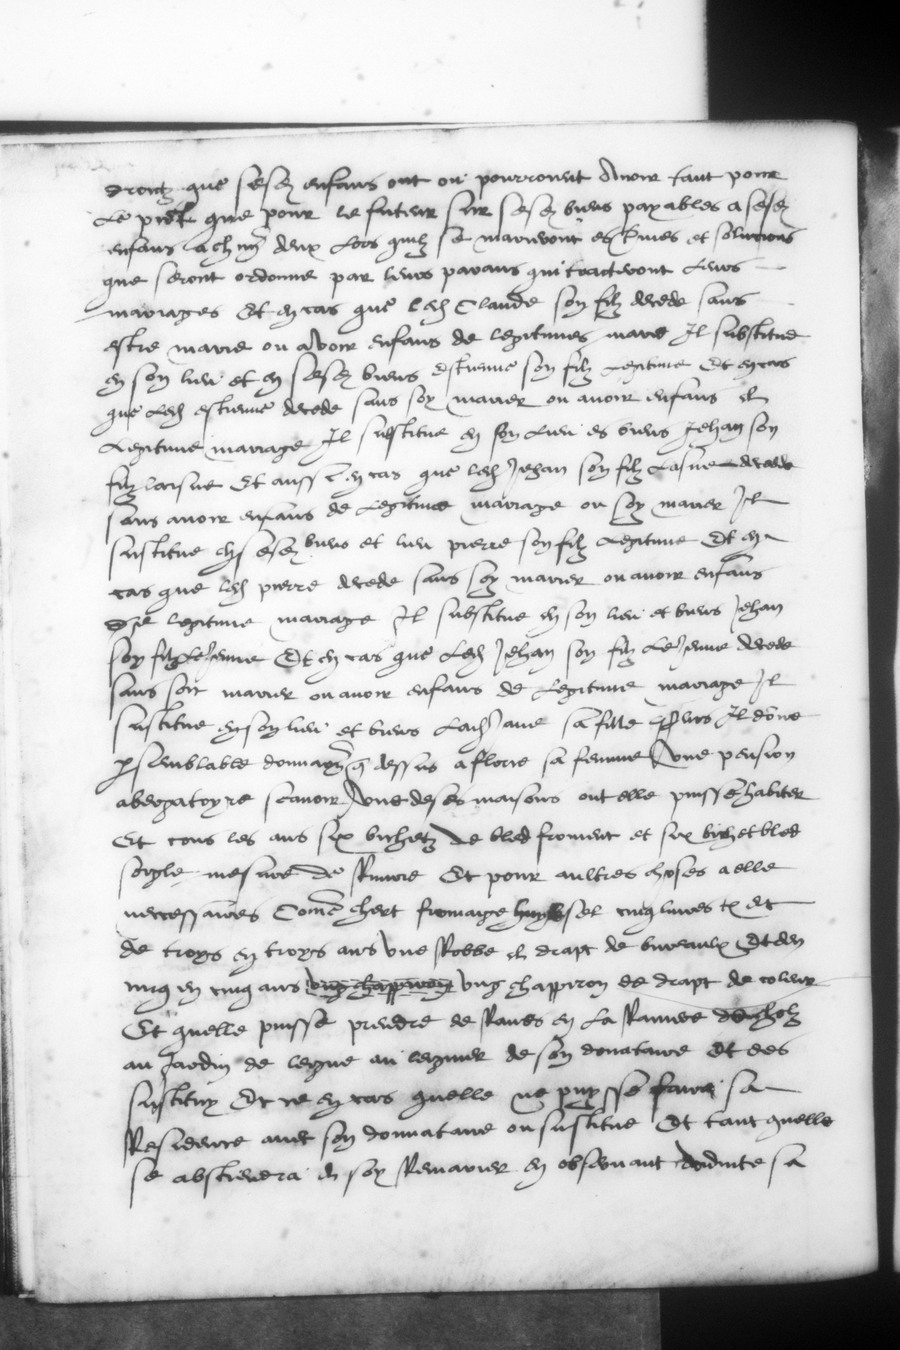 droictz que sesd enfans ont ou pourroient Avoir tant pour
Le pnt que pour le futeur sur sesd biens payables a sesd
enfans a chung deux Lors quilz se marieront es termes et solucions
que seront ordonne par leurs parans qui traicteront Leurs
mariages Et en cas que led Claude son filz decede sans
estre marie ou avoir enfans de legitimes marie Il substitue
en son lieu et en sesd biens estienne son filz Legitime Et en cas
que Led estienne decede sans soy marier ou avoir enfans en
Legitime mariage Il substitue en son Lieu et biens Jehan son
filz laisne Et aussi en cas que led Jehan son filz Laisne decede
sans avoir enfans de Legitime mariage ou soy marier Il
substitue en sesd biens et lieu pierre son filz Legitime Et en
cas que led pierre decede sans soy marier ou avoir enfans
de legitime mariage Il substitue en son lieu et biens Jehan
son filz le Jeune Et en cas que Led Jehan son filz Le Jeune decede
sans soy marier ou avoir enfans de Legitime mariage Il
substitue en son lieu et biens Lad Jane sa fille Il donne
p semblable donnacion q dessus a florie sa femme Une pension
abrogatoyre scavoir Une de ses maisons ont elle puisse habiter
Et tous les ans six bichetz de bled froment et six bichet bled
soigle mesure de Et pour aultres choses a elle
neccessaires Come chert fromaige sel cinq livres tz Et
de troys en troys ans Une Robbe en drapt de bureaulx Et den
cinq en cinq ans ung chapperon Ung chapperon de drapt de coleur
Et quelle puisse prendre de Raves en La Raviere
au Jardin de au de son donataire Et des
substituz Et ce en cas quelle ne puysse faire sa
Residence avec son donnataire ou substitue Et tant quelle
se abstiendra en soy Remarier en observant viduite sa